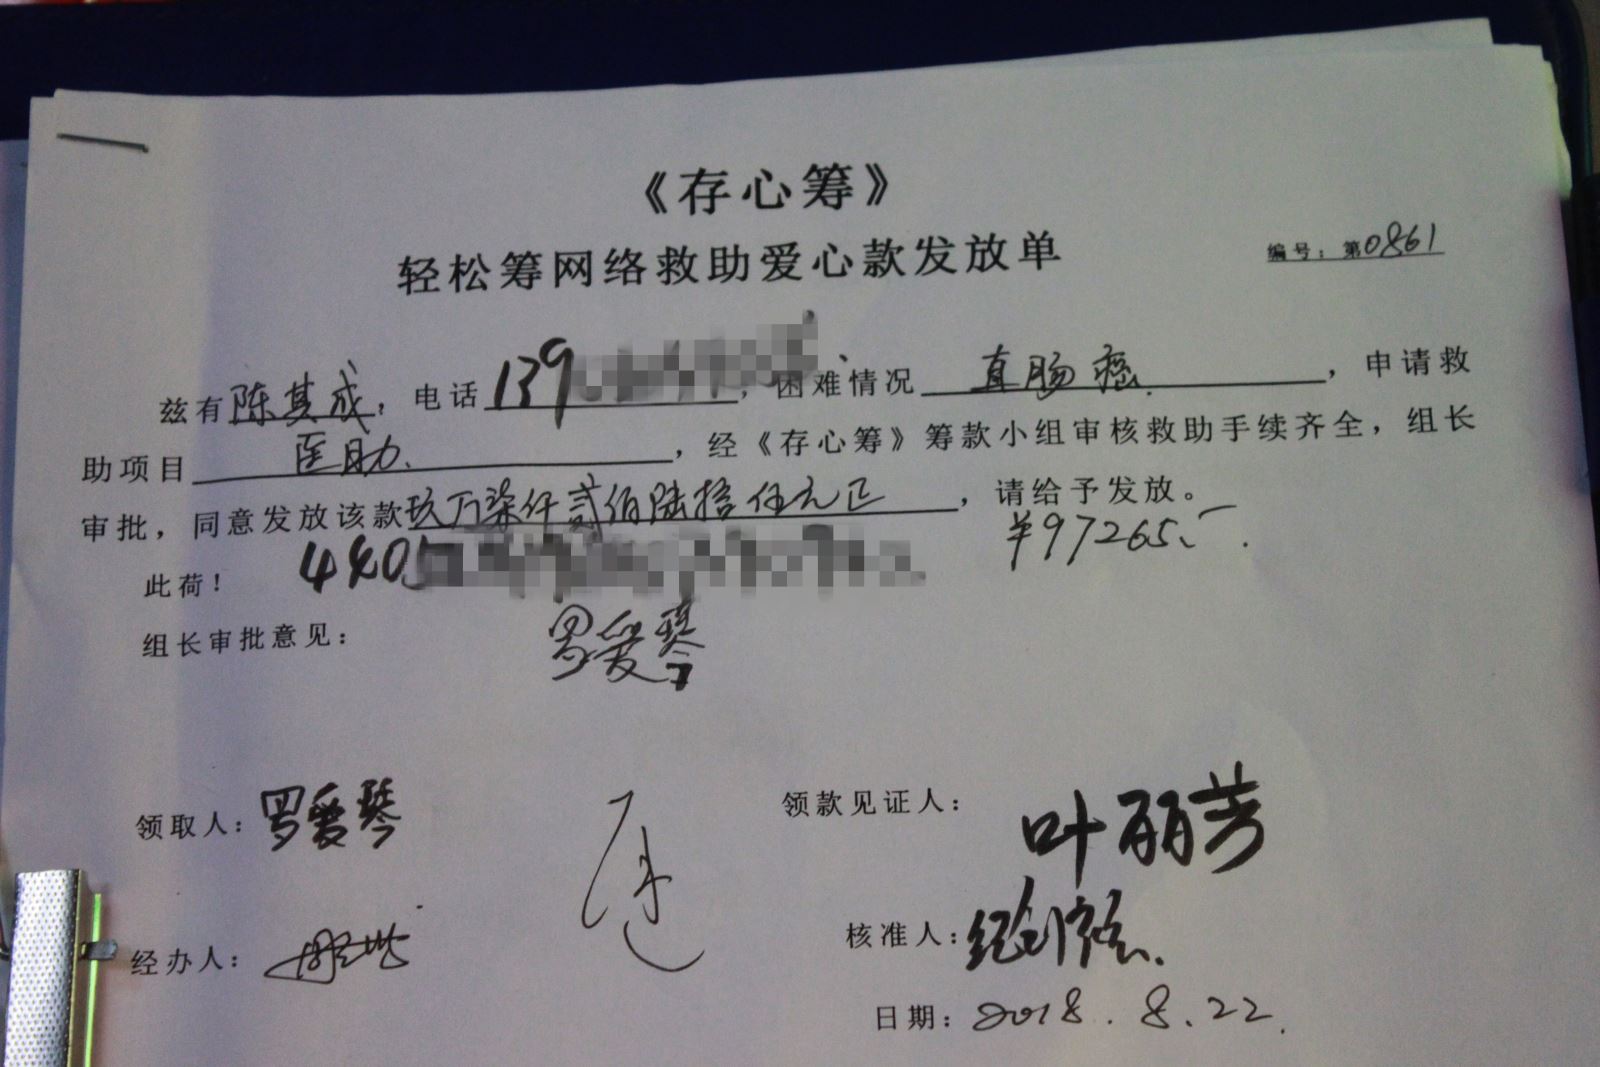 《存心筹》
轻松筹网络救助爱心款发放单
编号：第0861
兹有陈其成，电话139，困难情况直肠癌，申请救
助项目医助，经《存心筹》筹款小组审核救助手续齐全，组长
审批，同意发放该款玖万柒仟贰佰陆拾伍元正，请给予发放。
¥97265.一
此荷！4405
组长审批意见：罗爱琴
领取人：罗爱琴
领款见证人：叶丽芳
经办人：
核准人：
日期：2018.8.22.